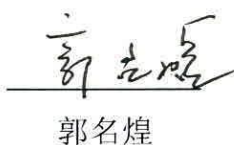 郭名煌
郭名煌